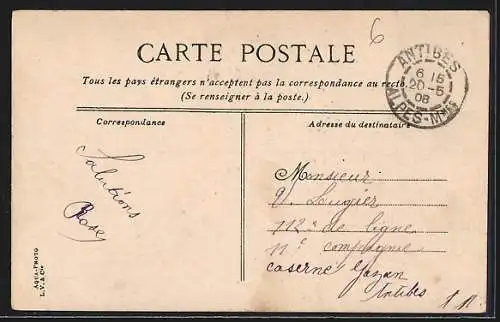 6
CARTE POSTALE
Tous les pays étrangers n'acceptent pas la correspondance au recto.
(Se renseigner à la poste.)
ANTIBES
6 15
20-5
08
ALPES-Mmes
Correspondance
Adresse du destinataire
Salutions
Monsieur
Lougier
112e de ligne
11e compagnie
caserne Gazan
Antibes
AQUA-PHOTO
L. V. & Cie